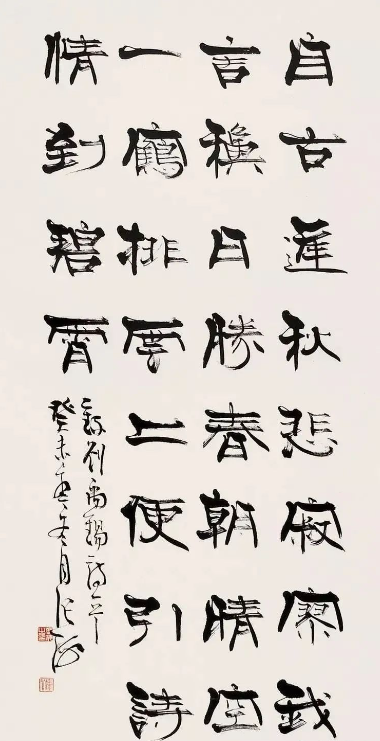 自古逢秋悲寂寥我
言穐日勝春朝晴空
一鶴排雲上便引詩
情到碧霄
錄劉禹錫詩
癸未年冬月張海